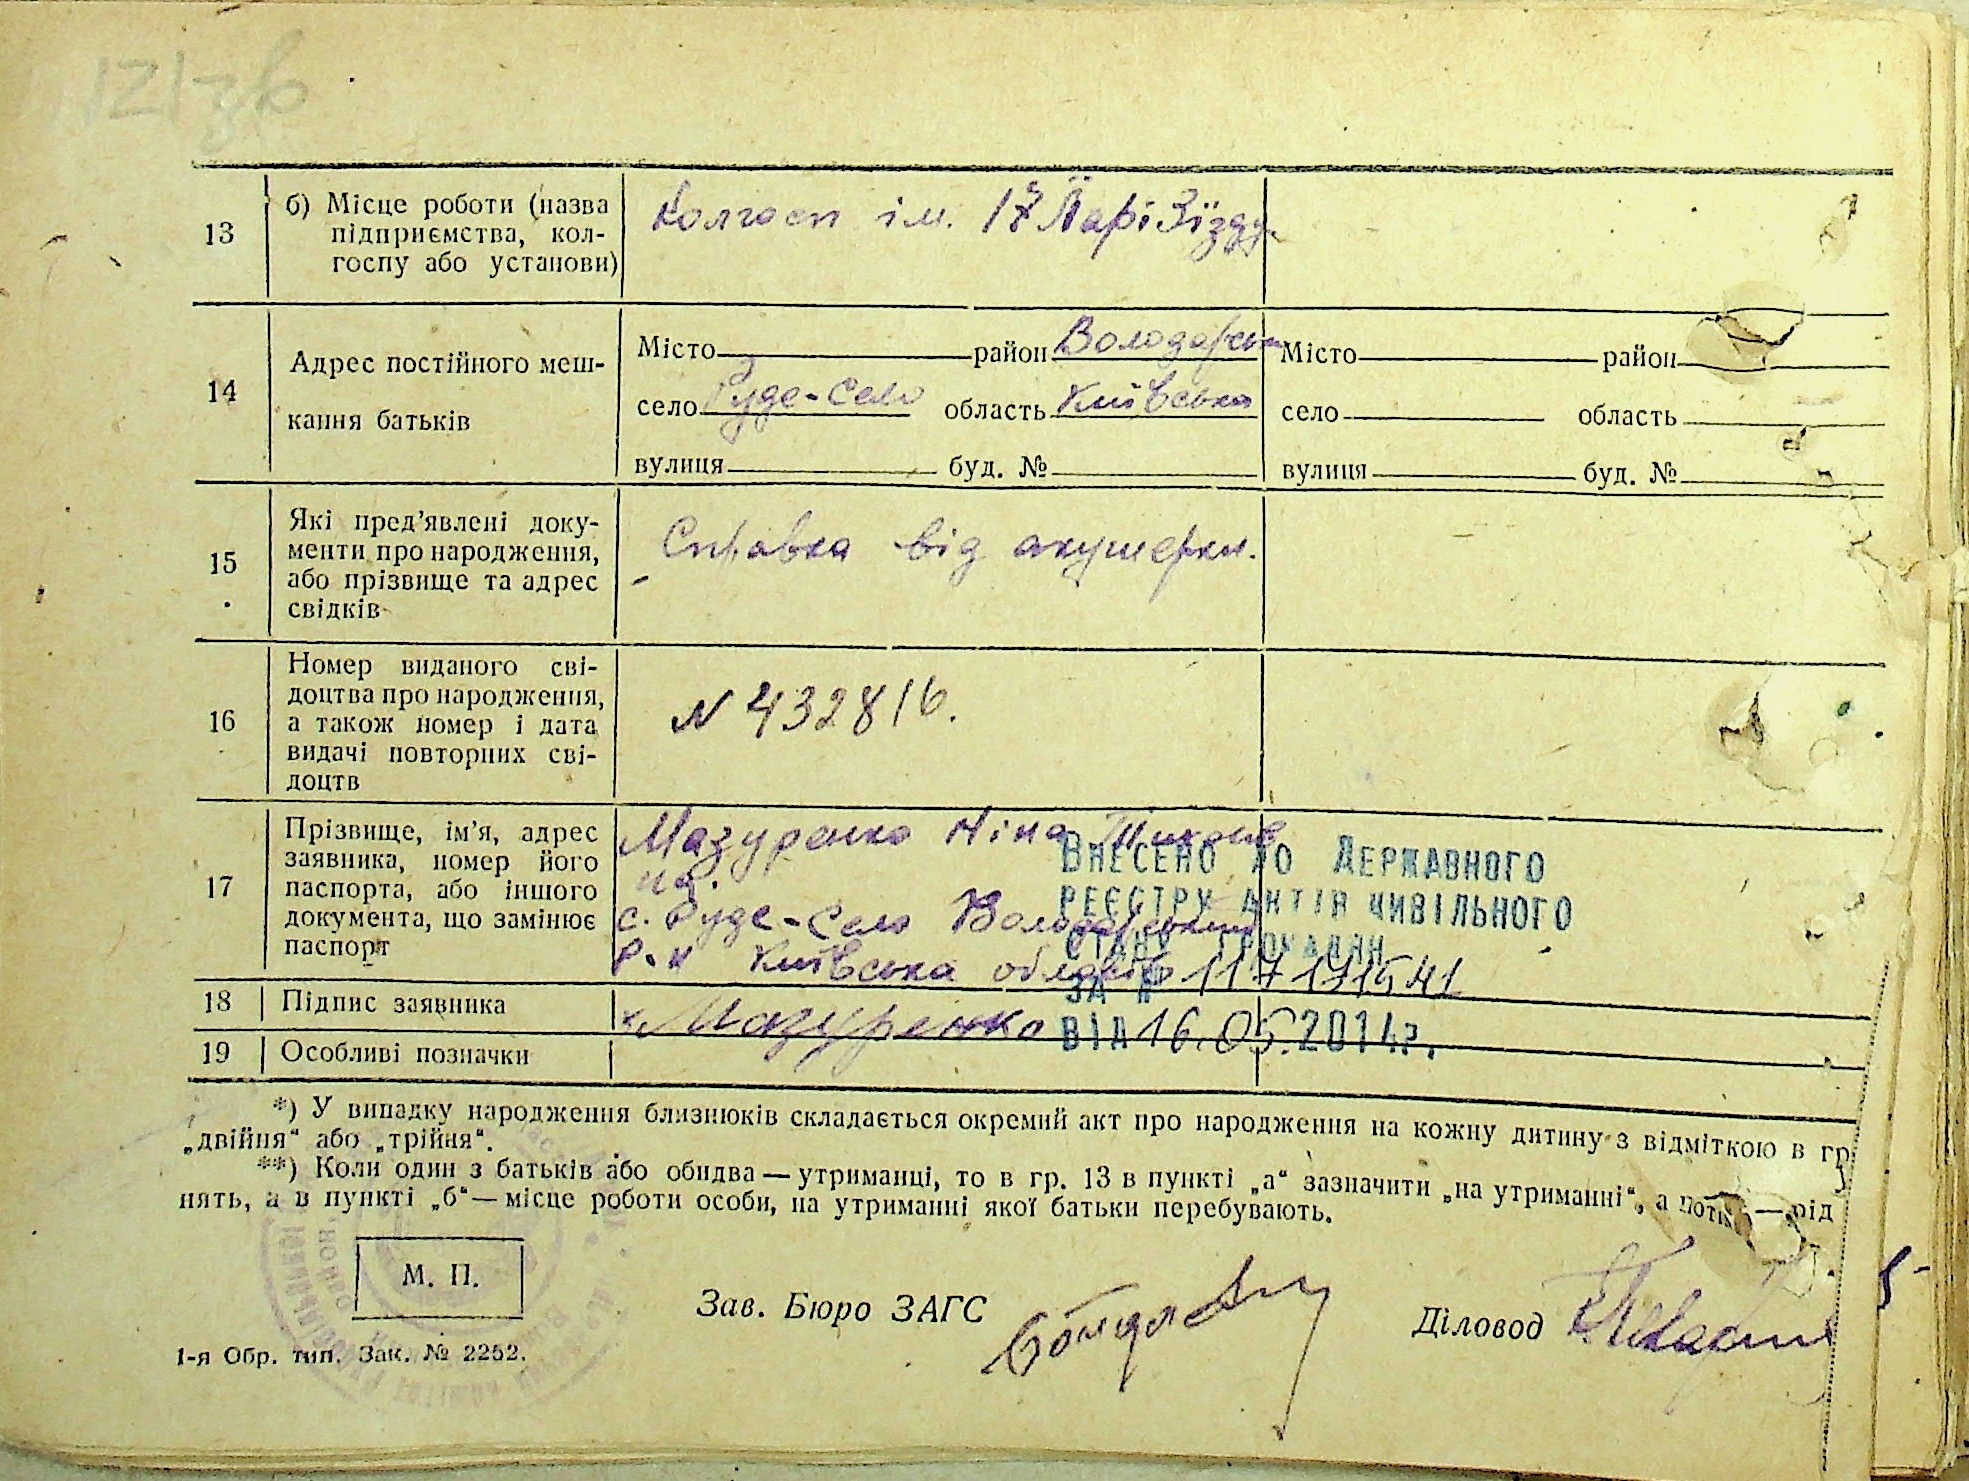 13
б) Місце роботи (назва
підприємства, кол-
госпу або установи)
Колгосп ім. 17 ПарЗїзду
14
Адрес постійного меш-
кання батьків
Місто район Володарськ
село Руде-Село область Київська
вулиця буд. №
Місто район
село область
вулиця буд. №
15
Які пред’явлені доку-
менти про народження,
або прізвище та адрес
свідків
Справка від акушерки.
16
Номер виданого сві-
доцтва про народження,
а також номер і дата
видачі повторних сві-
доцтв
N 432816.
17
Прізвище, ім’я, адрес
заявника, номер його
паспорта, або іншого
документа, що замінює
паспорт
Мазуренко Ніна Тихонів
на.
с. Руде-Село Володарський
р-н Київська область
18
Підпис заявника
Мазуренко
19
Особливі позначки
Внесено до Державного
реєстру актів цивільного
стану громадян
за №
від 16.05.2014р.
*) У випадку народження близнюків складається окремий акт про народження на кожну дитину з відміткою в гр.
„двійня“ або „трійня“.
**) Коли один з батьків або обидва — утриманці, то в гр. 13 в пункті „а“ зазначити „на утриманні“, а потім — рід
нять, а в пункті „б“ — місце роботи особи, на утриманні якої батьки перебувають.
М. П.
Зав. Бюро ЗАГС
Діловод
1-я Обр. тип. Зак. № 2252.